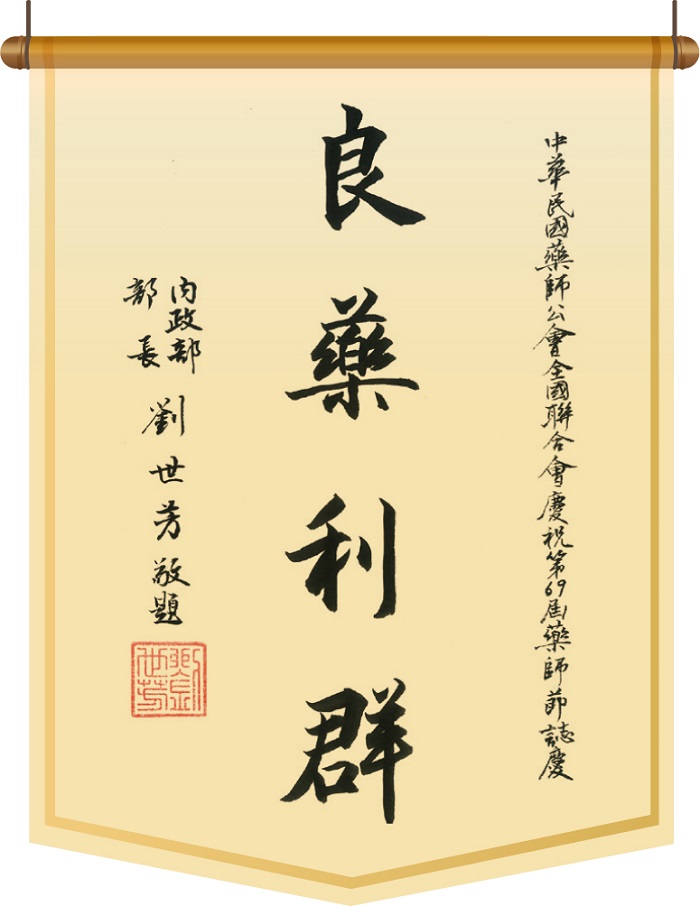 中華民國藥師公會全國聯合會慶祝第69屆藥師節誌慶
良藥利群
內政部
部長
劉世芳敬題
劉世芳